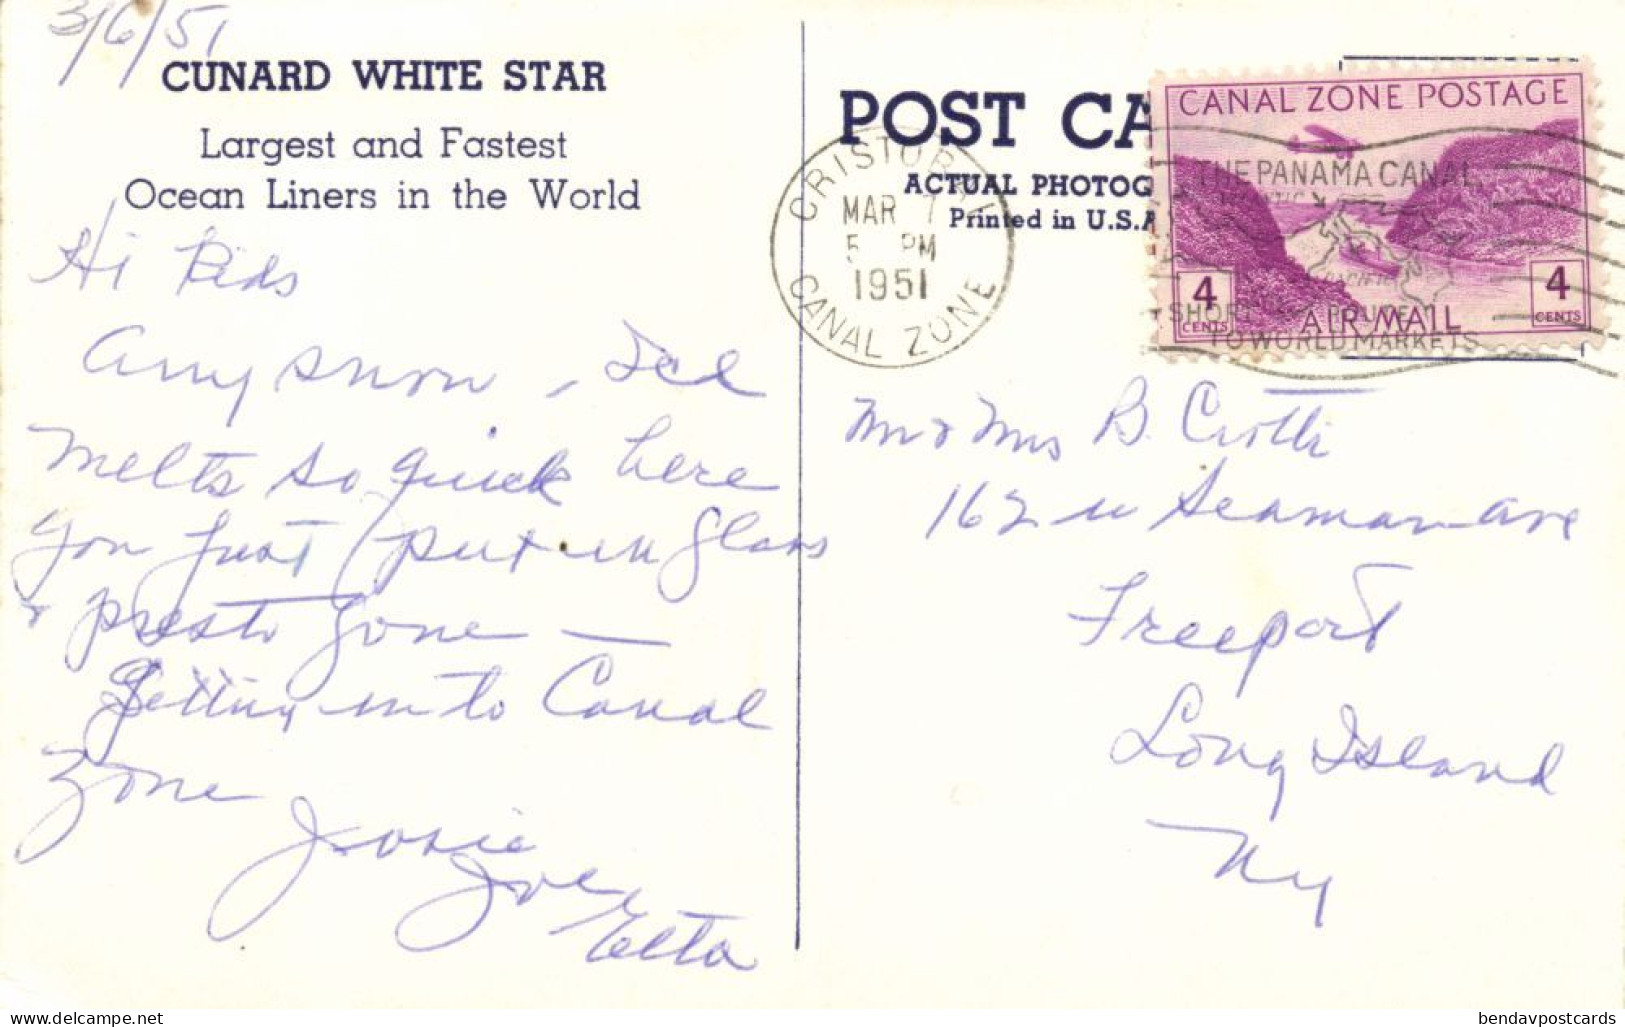 3/6/51
CUNARD WHITE STAR
Largest and Fastest
Ocean Liners in the World
Hi Kids
Any snow, Ice
melts so quick here
you just put in glass
& presto gone —
Getting in to Canal
Zone
Josie
Joe
Etta
POST CA
ACTUAL PHOTOG
Printed in U.S.A
CRISTOBAL
MAR 7
5 PM
1951
CANAL ZONE
CANAL ZONE POSTAGE
THE PANAMA CANAL
PACIFIC
4 CENTS
AIR MAIL
4 CENTS
SHORT ROUTE
TO WORLD MARKETS
Mr & Mrs B. Ciotti
162 W Seaman Ave
Freeport
Long Island
NY
www.delcampe.net
bendavpostcards